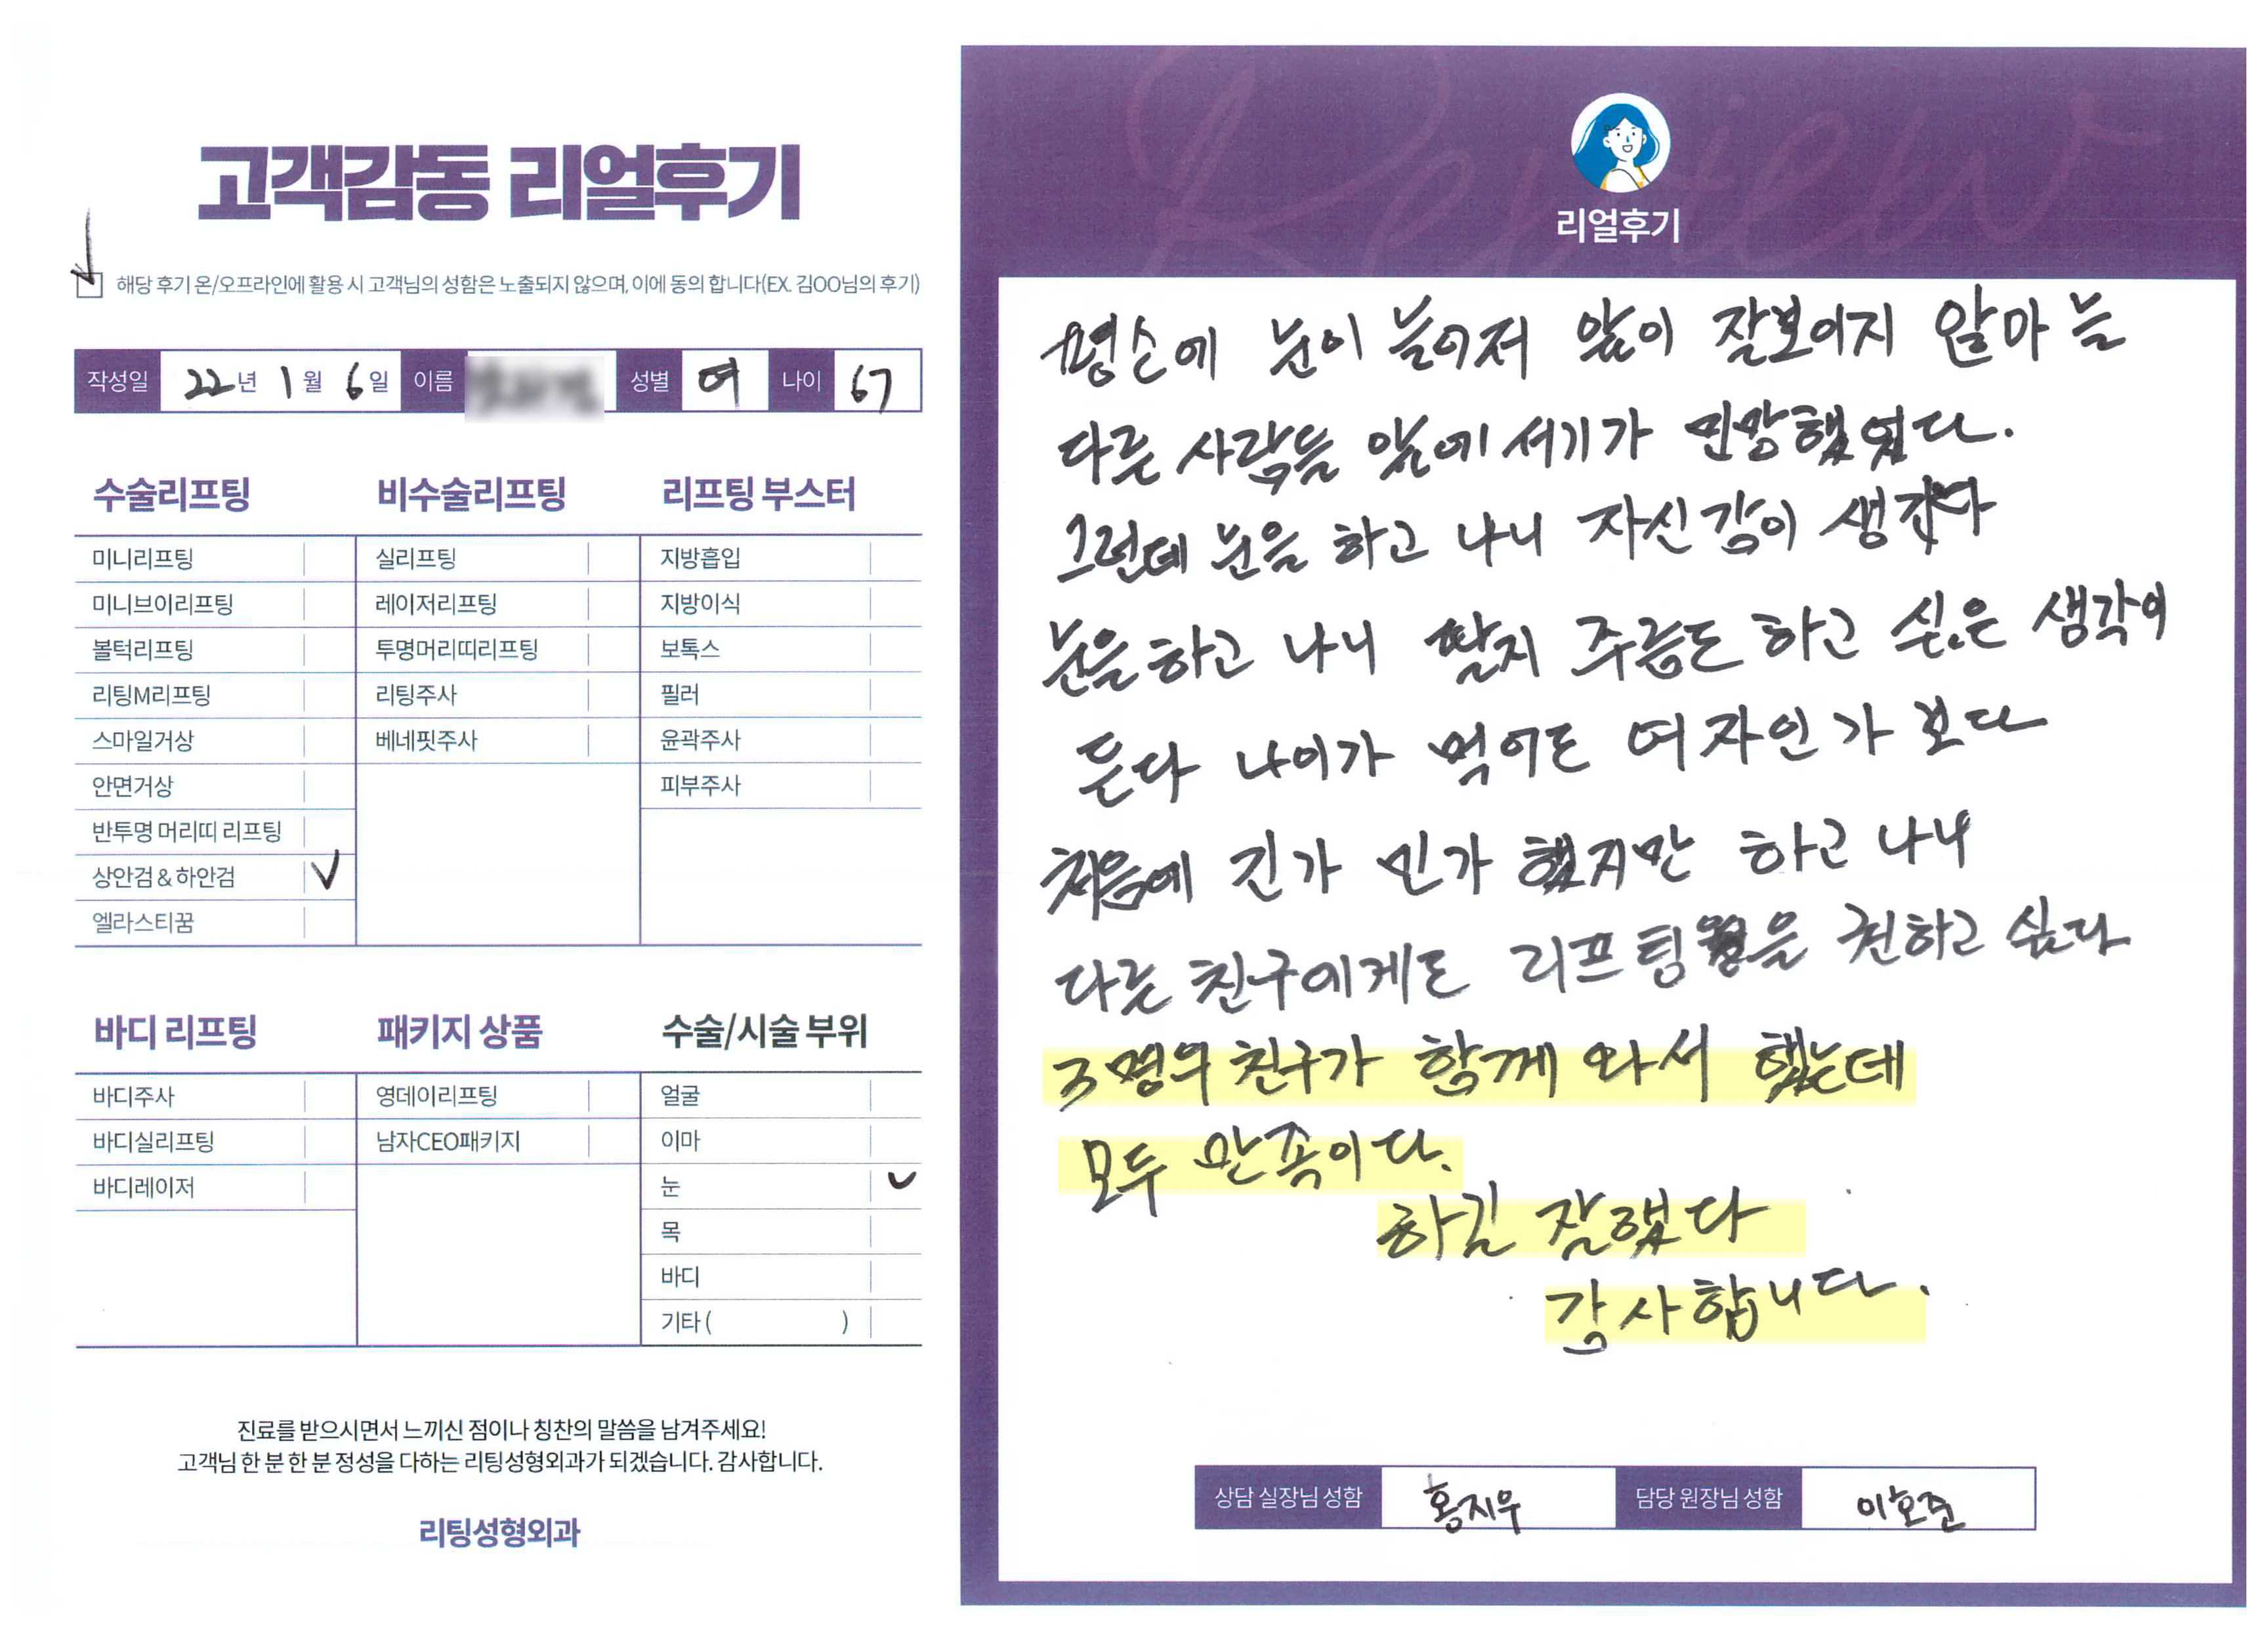 고객감동 리얼후기
해당 후기 온/오프라인에 활용 시 고객님의 성함은 노출되지 않으며, 이에 동의 합니다(EX. 김OO님의 후기)
작성일 22년 1월 6일 이름 성별 여 나이 67
수술리프팅
미니리프팅
미니브이리프팅
볼턱리프팅
리팅M리프팅
스마일거상
안면거상
반투명 머리띠 리프팅
상안검 & 하안검
엘라스티꿈
비수술리프팅
실리프팅
레이저리프팅
투명머리띠리프팅
리팅주사
베네핏주사
리프팅 부스터
지방흡입
지방이식
보톡스
필러
윤곽주사
피부주사
바디 리프팅
바디주사
바디실리프팅
바디레이저
패키지 상품
영데이리프팅
남자CEO패키지
수술/시술 부위
얼굴
이마
눈
목
바디
기타 ( )
진료를 받으시면서 느끼신 점이나 칭찬의 말씀을 남겨주세요!
고객님 한 분 한 분 정성을 다하는 리팅성형외과가 되겠습니다. 감사합니다.
리팅성형외과
Review
리얼후기
평소에 눈이 늘어저 앞이 잘보이지 않마 늘
다른 사람들 앞에 서기가 민망했었다.
그런데 눈을 하고 나니 자신감이 생겼다
눈을 하고 나니 팔지 주름도 하고 싶은 생각이
든다 나이가 먹어도 여자인가 보다
처음에 긴가 민가 했지만 하고 나니
다른 친구에게도 리프팅을 권하고 싶다
3명의 친구가 함께 와서 했는데
모두 만족이다.
하길 잘했다
감사합니다.
상담 실장님 성함 홍지우 담당 원장님 성함 이호준